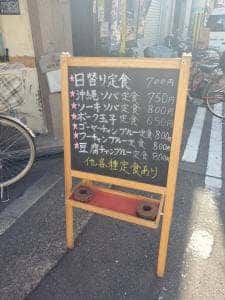 ★日替り定食 700円
★沖縄ソバ定食 750円
★ソーキソバ定食 800円
★ポーク玉子定食 650円
★ゴーヤーチャンプルー定食 800円
★フーチャンプルー定食 800円
★豆腐チャンプルー定食 800円
他各種定食あり